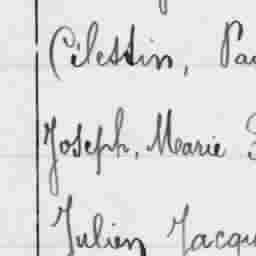 Célestin, Pa
Joseph, Marie
Julien Jacqu